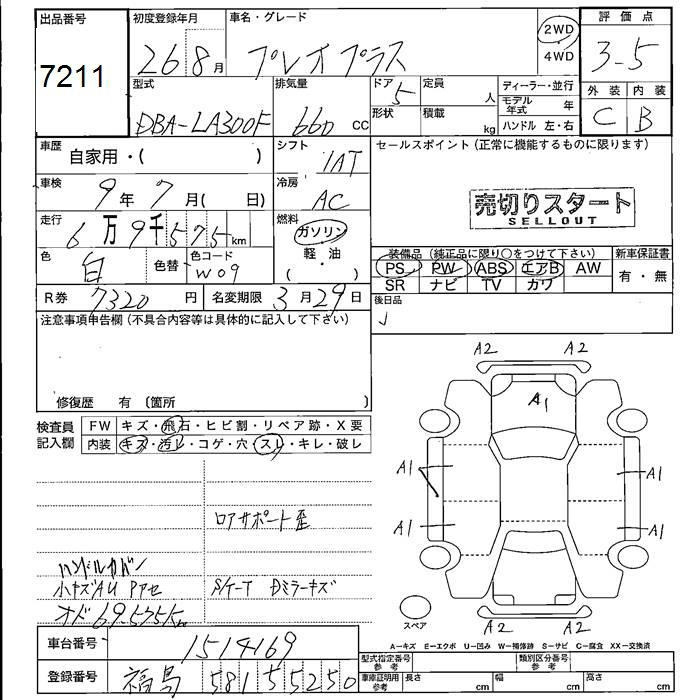 出品番号
7211
初度登録年月
26 8月
車名・グレード
プレオプラス
2WD
4WD
評価点
3-5
外装 内装
C B
型式
DBA-LA300F
排気量
660 cc
ドア 5
形状
定員 人
積載 kg
ディーラー・並行
モデル年式 年
ハンドル 左・右
車歴
自家用・( )
シフト
1AT
セールスポイント(正常に機能するものに限ります)
売切りスタート
SELLOUT
車検
9年 7月( 日)
冷房
AC
走行
6万9千575km
燃料
ガソリン
軽・油
( ・ )
色
白
色替
色コード
W09
装備品(純正品に限り○をつけて下さい)
PS PW ABS エアB AW
SR ナビ TV カワ
新車保証書
有・無
R券 7320円
名変期限 3月29日
後日品
注意事項申告欄(不具合内容等は具体的に記入して下さい)
修復歴 有 〔箇所 〕
検査員記入欄
FW キズ・飛石・ヒビ割・リペア跡・X要
内装 キズ・汚レ・コゲ・穴・スレ・キレ・破レ
ロアサポート歪
ハンドルカバン
小キズAU Pアセ
オド69.575Km
Dミラーキズ
車台番号
1514169
登録番号
福島 581 5 5250
A2 A2
A1
A1 A1
A1 A1
A2 A2
スペア
A-キズ E-エクボ U-凹み W-補修跡 S-サビ C-腐食 XX-交換済
型式指定番号 参考
類別区分番号 参考
車庫証明用 参考
長さ cm
幅 cm
高さ cm